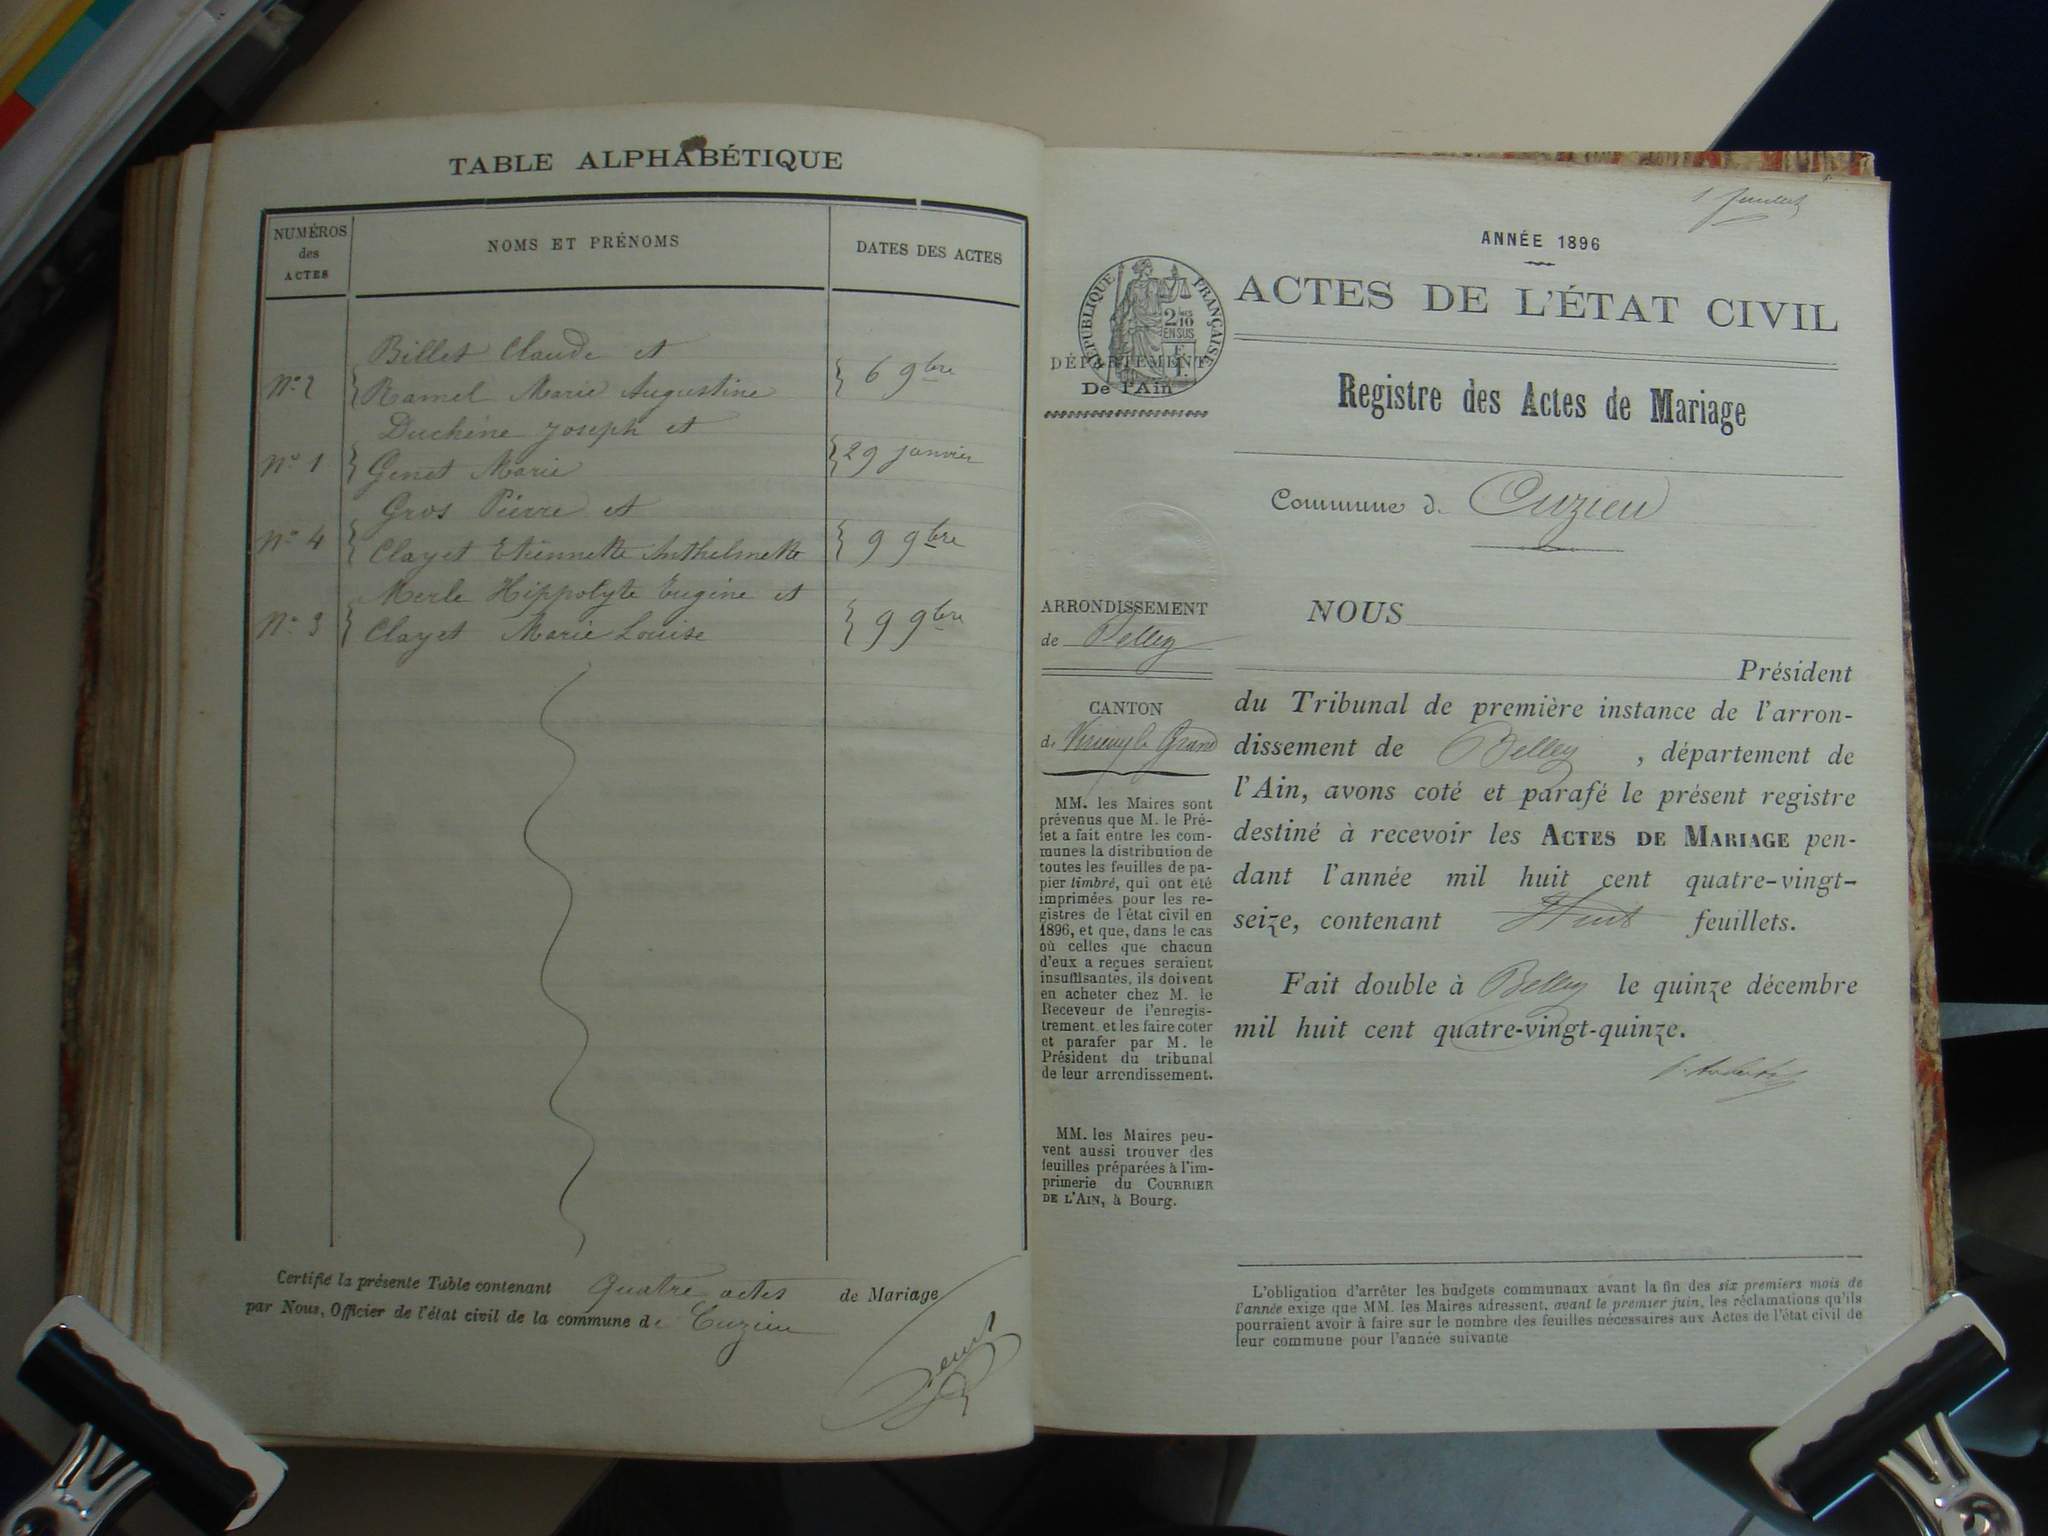 TABLE ALPHABÉTIQUE
NUMÉROS des ACTES
NOMS ET PRÉNOMS
DATES DES ACTES
Billet Claude et
No 2 Ramel Marie Augustine 6 9bre
Duchêne Joseph et
No 1 Genet Marie 29 janvier
Gros Pierre et
No 4 Clayet Etiennette Anthelmette 9 9bre
Merle Hippolyte Eugène et
No 3 Clayet Marie Louise 9 9bre
Certifié la présente Table contenant Quatre actes de Mariage
par Nous, Officier de l'état civil de la commune de Cuzieu
ANNÉE 1896
ACTES DE L'ÉTAT CIVIL
RÉPUBLIQUE FRANÇAISE
2/10
EN SUS
DÉPARTEMENT
De l'Ain
Registre des Actes de Mariage
Commune de Cuzieu
ARRONDISSEMENT
de Belley
CANTON
de Virieu le Grand
MM. les Maires sont
prévenus que M. le Pré-
fet a fait entre les com-
munes la distribution de
toutes les feuilles de pa-
pier timbré, qui ont été
imprimées pour les re-
gistres de l'état civil en
1896, et que, dans le cas
où celles que chacun
d'eux a reçues seraient
insuffisantes, ils doivent
en acheter chez M. le
Receveur de l'enregis-
trement et les faire coter
et parafer par M. le
Président du tribunal
de leur arrondissement.
MM. les Maires peu-
vent aussi trouver des
feuilles préparées à l'im-
primerie du COURRIER
DE L'AIN, à Bourg.
NOUS
Président
du Tribunal de première instance de l'arron-
dissement de Belley, département de
l'Ain, avons coté et parafé le présent registre
destiné à recevoir les ACTES DE MARIAGE pen-
dant l'année mil huit cent quatre-vingt-
seize, contenant Huit feuillets.
Fait double à Belley le quinze décembre
mil huit cent quatre-vingt-quinze.
L'obligation d'arrêter les budgets communaux avant la fin des six premiers mois de
l'année exige que MM. les Maires adressent, avant le premier juin, les réclamations qu'ils
pourraient avoir à faire sur le nombre des feuilles nécessaires aux Actes de l'état civil de
leur commune pour l'année suivante